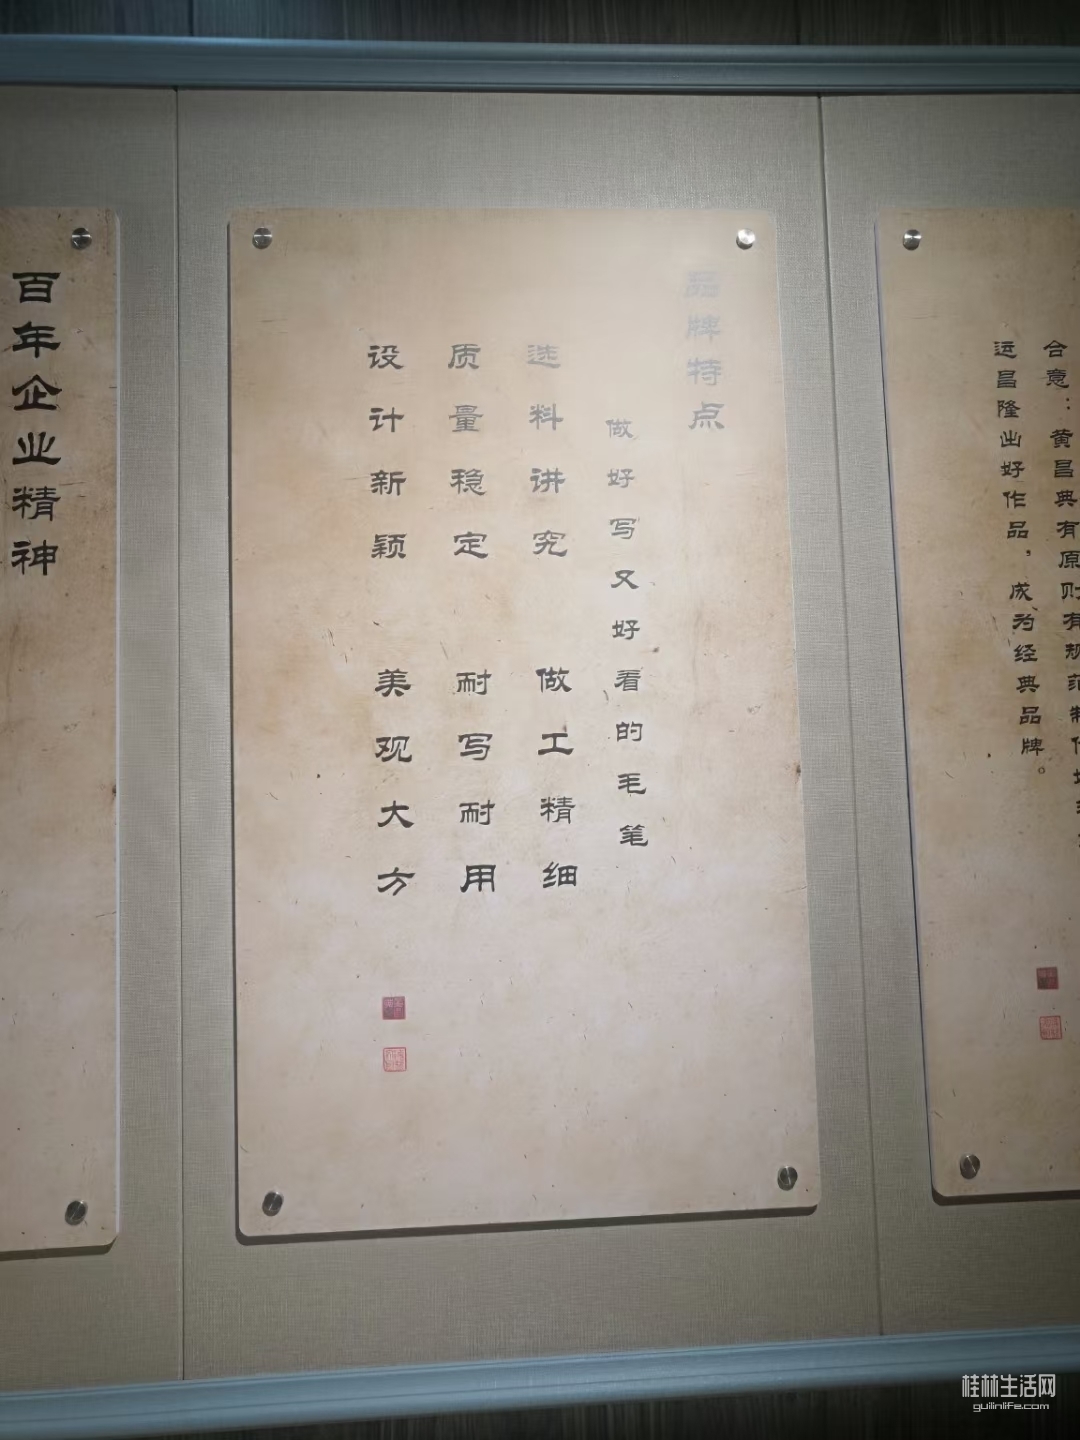 品牌特点
做好写又好看的毛笔
选料讲究 做工精细
质量稳定 耐写耐用
设计新颖 美观大方
百年企业精神
合意：黄昌典有原则有规范制作
运昌隆出好作品，成为经典品牌。
桂林生活网
guilinlife.com